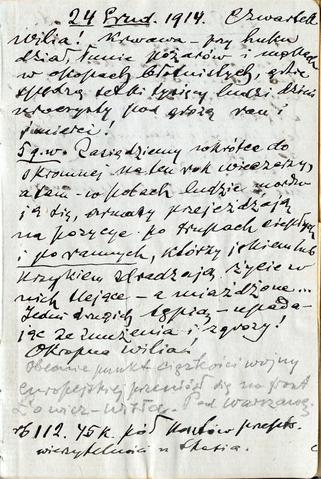 24 Grud. 1914. Czwartek
Wilia! Krwawa – przy huku
dział, łunie pożarów i mękach
w okopach błotnistych, gdzie
spędzą setki tysięcy ludzi dzień
uroczysty pod grozą ran i
śmierci.
5 g. w. Zasiądziemy wkrótce do
skromnej na ten rok wieczerzy,
a tam – w polach ludzie mordu-
ją się, armaty przejeżdżają
na pozycje po trupach ciepłych
i po rannych, którzy jękiem lub
krzykiem zdradzają życie w
nich tlejące – a miażdżone...
Jedni drugich tępią – upada-
jąc ze znużenia i zgrozy!
Okropna wilia!
Obecnie punkt ciężkości wojny
europejskiej przeniósł się na front
Łowicz – Wisła. Pod Warszawą.
112. 45 k. pół
wierzytelności u